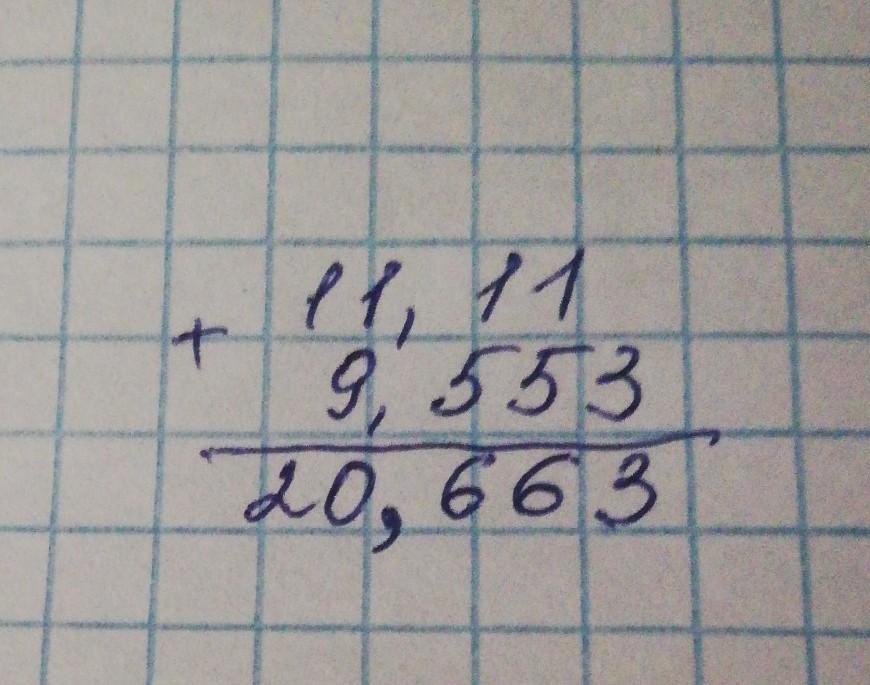 11,11
+
9,553
20,663